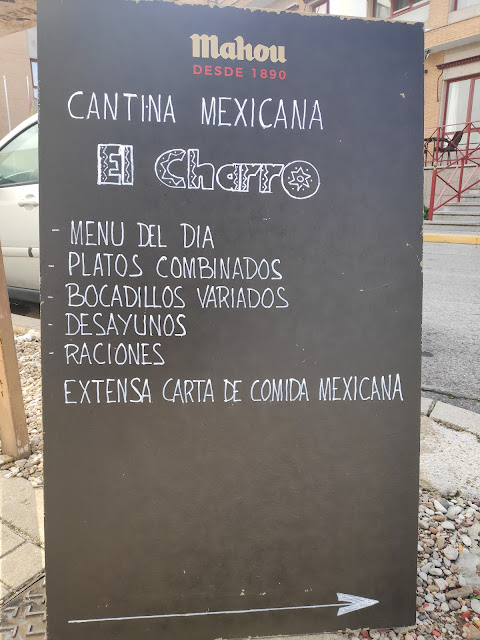 Mahou
DESDE 1890
CANTINA MEXICANA
El Charro
- MENU DEL DIA
- PLATOS COMBINADOS
- BOCADILLOS VARIADOS
- DESAYUNOS
- RACIONES
EXTENSA CARTA DE COMIDA MEXICANA